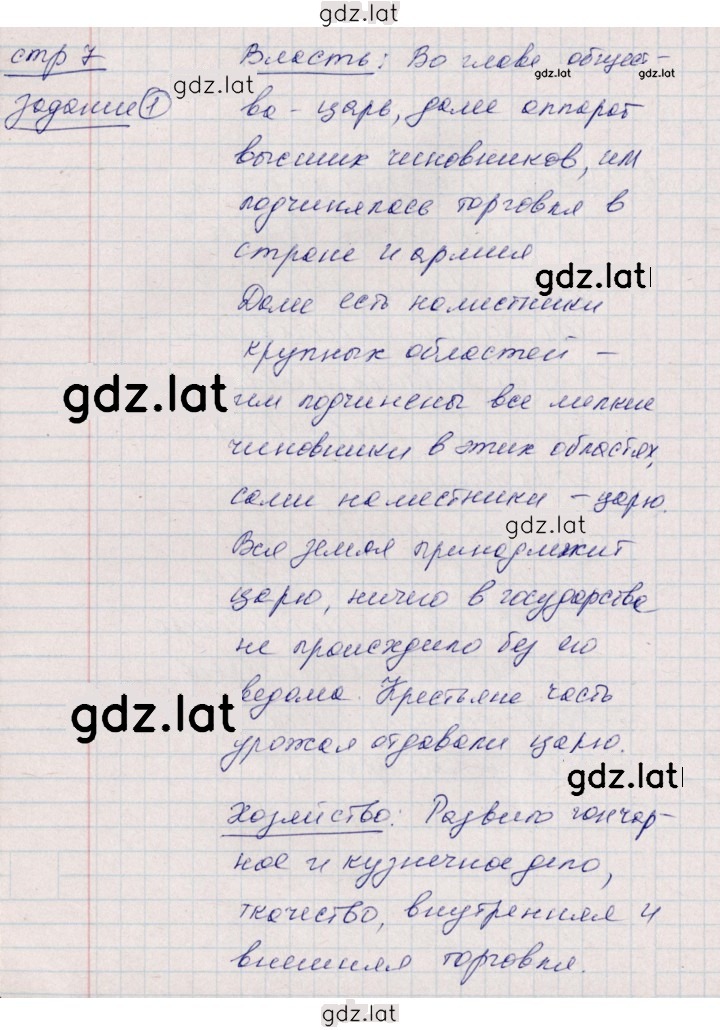 gdz.lat
стр 7
Задание 1
gdz.lat
Власть: Во главе общест-
gdz.lat
gdz.lat
ва - царь, далее аппарат
высших чиновников, им
подчинялась торговля в
стране и армия
gdz.lat
Далее есть наместники
крупных областей –
gdz.lat
им подчинены все мелкие
чиновники в этих областях,
сами наместники – царю.
gdz.lat
Вся земля принадлежит
царю, ничего в государстве
не происходило без его
ведома. Крестьяне часть
gdz.lat
урожая отдавали царю.
gdz.lat
Хозяйство: Развито гончар-
ное и кузнечное дело,
ткачество, внутренняя и
внешняя торговля.
gdz.lat